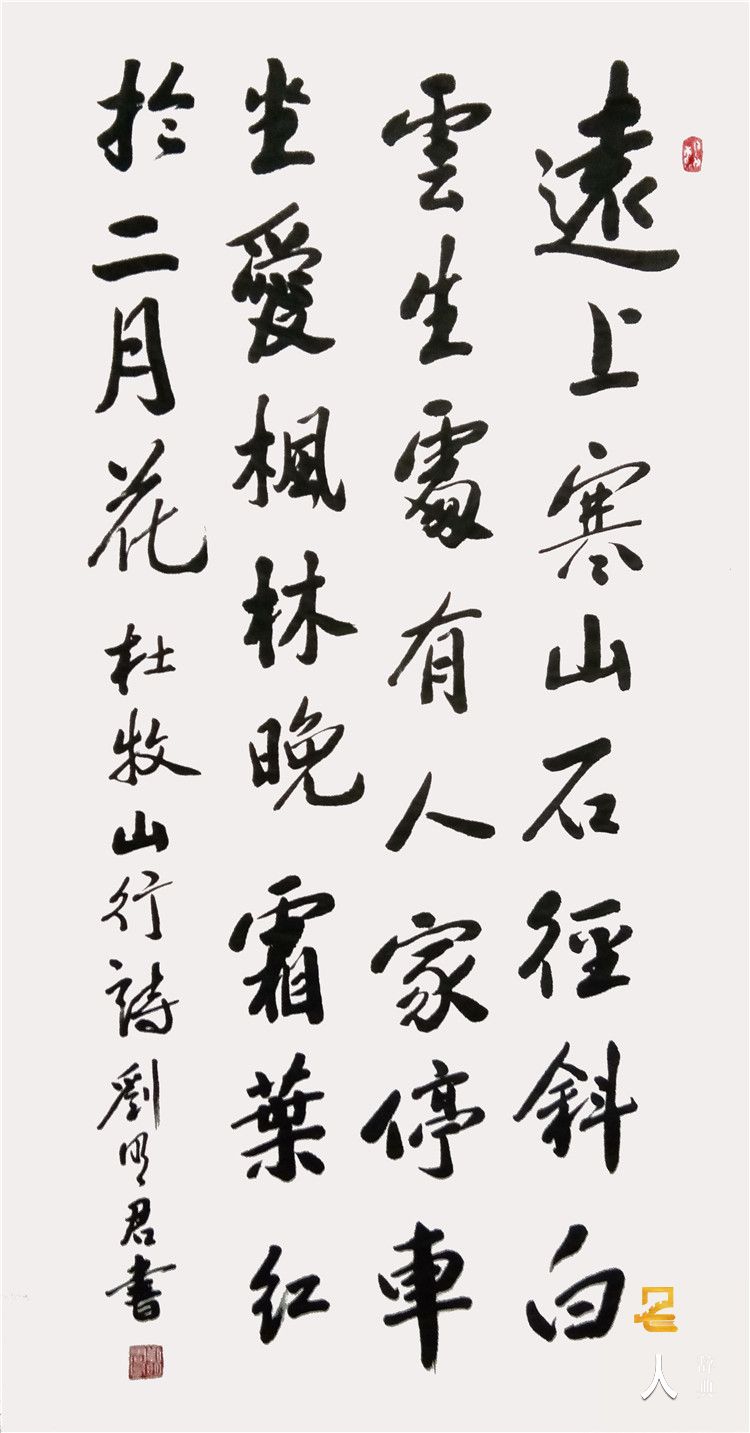 遠上寒山石徑斜白
雲生處有人家停車
坐愛楓林晚霜葉红
於二月花
杜牧山行詩劉明君書
名人
辞典